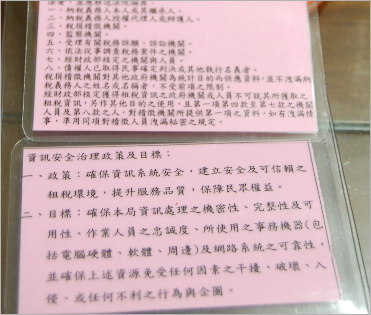 法者,並應移送法院
一、納稅義務人本人或其繼承人。
二、納稅義務人授權代理人或辯護人。
三、稅捐稽徵機關。
四、監察機關。
五、受理有關稅務訴願、訴訟機關。
六、依法從事調查稅務案件之機關。
七、經財政部核定之機關與人員。
八、債權人已取得民事確定判決或其他執行名義者。
稅捐稽徵機關對其他政府機關為統計目的而供應資料,並不洩漏納
稅義務人之姓名或名稱者,不受前項之限制。
經財政部核定獲得租稅資訊之政府機關或人員不可就其所獲取之
租稅資訊,另作其他目的之使用,且第一項第四款至第七款之機關
人員及第八款之人,對稽徵機關所提供第一項之資料,如有洩漏情
事,準用同項對稽徵人員洩漏秘密之規定。
資訊安全治理政策及目標:
一、政策:確保資訊系統安全,建立安全及可信賴之
租稅環境,提升服務品質,保障民眾權益。
二、目標:確保本局資訊處理之機密性、完整性及可
用性、作業人員之忠誠度、所使用之事務機器(包
括電腦硬體、軟體、周邊)及網路系統之可靠性,
並確保上述資源免受任何因素之干擾、破壞、入
侵、或任何不利之行為與企圖。